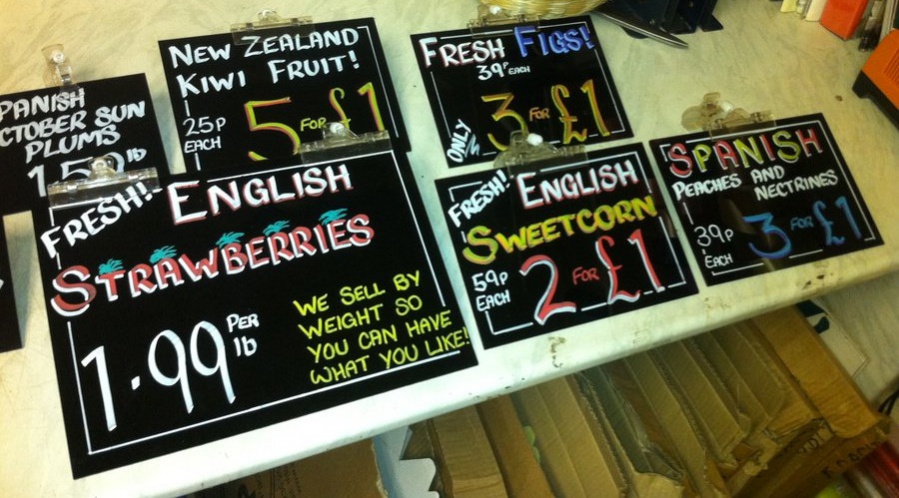 PANISH
CTOBER SUN
PLUMS
lb
NEW ZEALAND
KIWI FRUIT!
25P
EACH
5 FOR £1
FRESH FIGS!
39P EACH
ONLY
3 FOR £1
FRESH! ENGLISH
STRAWBERRIES
1.99 PER lb
WE SELL BY
WEIGHT SO
YOU CAN HAVE
WHAT YOU LIKE!
FRESH! ENGLISH
SWEETCORN
59P
EACH
2 FOR £1
SPANISH
PEACHES AND
NECTRINES
39P
EACH
3 FOR £1